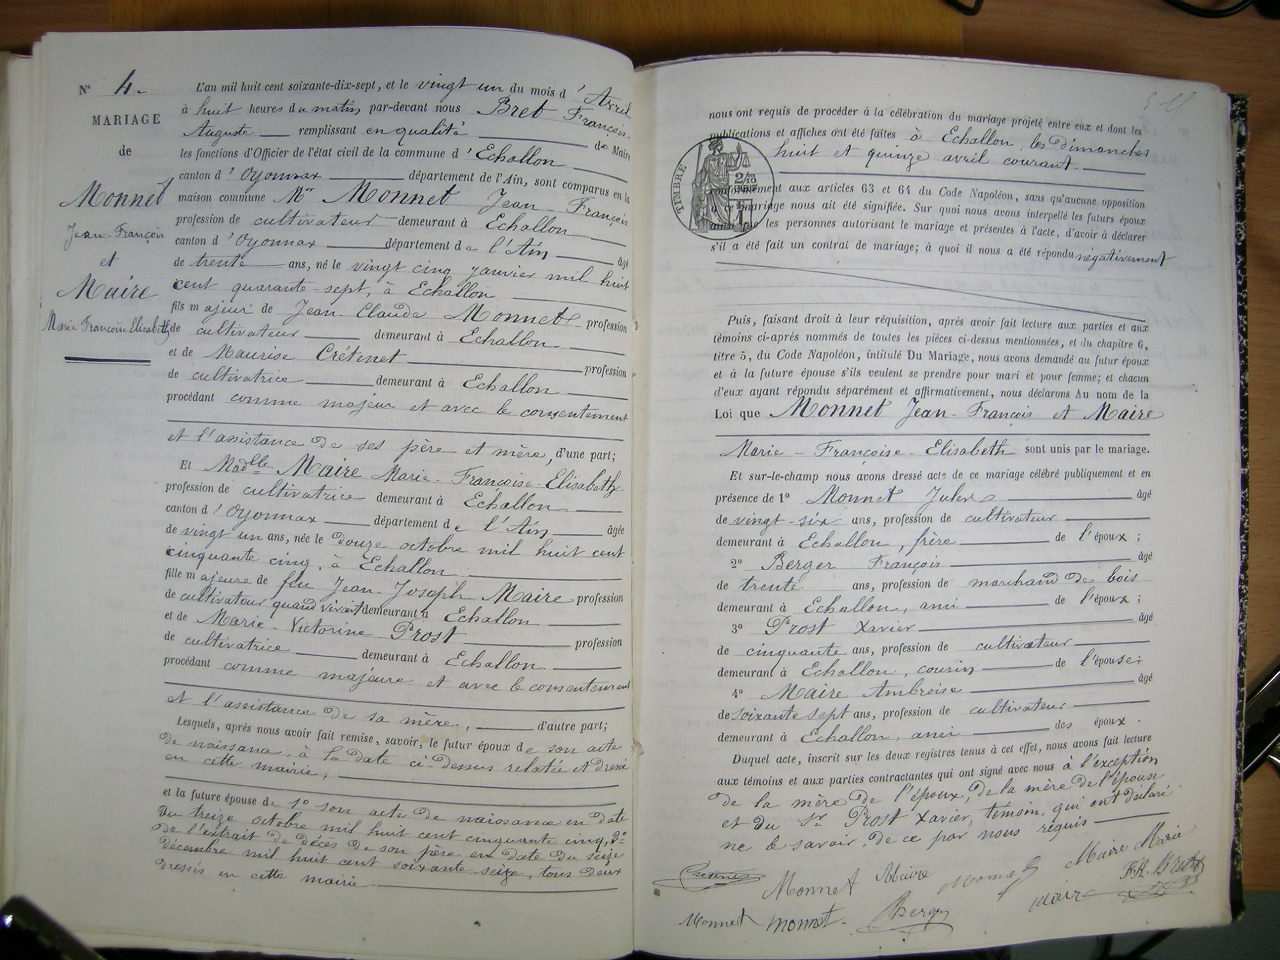 N° 4.
MARIAGE
de
Monnet
Jean-François
et
Maire
Marie Françoise Elisabeth
L'an mil huit cent soixante-dix-sept, et le vingt un du mois d'Avril
à huit heures du matin, par-devant nous Bret François
Auguste remplissant en qualité de Maire
les fonctions d'Officier de l'état civil de la commune d'Echallon
canton d'Oyonnax département de l'Ain, sont comparus en la
maison commune Mr Monnet Jean François
profession de cultivateur demeurant à Echallon
canton d'Oyonnax département de l'Ain âgé
de trente ans, né le vingt cinq janvier mil huit
cent quarante-sept, à Echallon
fils majeur de Jean-Claude Monnet profession
de cultivateur demeurant à Echallon
et de Maurise Crétenet profession
de cultivatrice demeurant à Echallon
procédant comme majeur et avec le consentement
et l'assistance de ses père et mère, d'une part;
Et Madelle Maire Marie-Françoise-Elisabeth
profession de cultivatrice demeurant à Echallon
canton d'Oyonnax département de l'Ain âgée
de vingt un ans, née le douze octobre mil huit cent
cinquante cinq, à Echallon
fille majeure de feu Jean-Joseph Maire profession
de cultivateur quand vivait demeurant à Echallon
et de Marie-Victorine Prost profession
de cultivatrice demeurant à Echallon
procédant comme majeure et avec le consentement
et l'assistance de sa mère, d'autre part;
Lesquels, après nous avoir fait remise, savoir, le futur époux de son acte
de naissance, à la date ci-dessus relatée et dressé
en cette mairie,
et la future épouse de 1° son acte de naissance en date
du treize octobre mil huit cent cinquante cinq, 2°
de l'extrait de décès de son père en date du seize
décembre mil huit cent soixante-seize, tous deux
dressés en cette mairie
nous ont requis de procéder à la célébration du mariage projeté entre eux et dont les
publications et affiches ont été faites à Echallon, les dimanches
huit et quinze avril courant
TIMBRE
conformément aux articles 63 et 64 du Code Napoléon, sans qu'aucune opposition
à ce mariage nous ait été signifiée. Sur quoi nous avons interpellé les futurs époux
ainsi que les personnes autorisant le mariage et présentes à l'acte, d'avoir à déclarer
s'il a été fait un contrat de mariage; à quoi il nous a été répondu négativement
Puis, faisant droit à leur réquisition, après avoir fait lecture aux parties et aux
témoins ci-après nommés de toutes les pièces ci-dessus mentionnées, et du chapitre 6,
titre 5, du Code Napoléon, intitulé Du Mariage, nous avons demandé au futur époux
et à la future épouse s'ils veulent se prendre pour mari et pour femme; et chacun
d'eux ayant répondu séparément et affirmativement, nous déclarons Au nom de la
Loi que Monnet Jean-François et Maire
Marie-Françoise-Elisabeth sont unis par le mariage.
Et sur-le-champ nous avons dressé acte de ce mariage célébré publiquement et en
présence de 1° Monnet Jules âgé
de vingt-six ans, profession de cultivateur
demeurant à Echallon, frère de l'époux;
2° Berger François âgé
de trente ans, profession de marchand de bois
demeurant à Echallon, ami de l'époux;
3° Prost Xavier âgé
de cinquante ans, profession de cultivateur
demeurant à Echallon, cousin de l'épouse;
4° Maire Ambroise âgé
de soixante sept ans, profession de cultivateur
demeurant à Echallon, ami des époux.
Duquel acte, inscrit sur les deux registres tenus à cet effet, nous avons fait lecture
aux témoins et aux parties contractantes qui ont signé avec nous à l'exception
de la mère de l'époux, de la mère de l'épouse
et du Sr Prost Xavier, témoin, qui ont déclaré
ne le savoir, de ce par nous requis
Monnet Maire Monnet Maire Marie
Monnet monnet Berger Maire